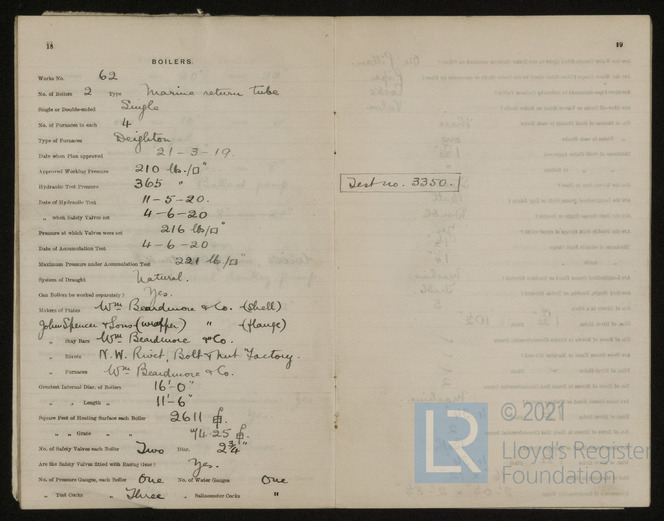 18
BOILERS.
Works No. 62
No. of Boilers 2 Type Marine return tube
Single or Double-ended Single
No. of Furnaces in each 4
Type of Furnaces Deighton
Date when Plan approved 21-3-19.
Approved Working Pressure 210 lb./□"
Hydraulic Test Pressure 365 "
Date of Hydraulic Test 11-5-20.
„ when Safety Valves set 4-6-20
Pressure at which Valves were set 216 lb/□"
Date of Accumulation Test 4-6-20
Maximum Pressure under Accumulation Test 221 lb./□"
System of Draught Natural.
Can Boilers be worked separately? Yes.
Makers of Plates Wm Beardmore & Co. (Shell)
John Spencer & Sons (wrapper) " (flange)
„ Stay Bars Wm Beardmore & Co.
„ Rivets N.W. Rivet, Bolt & Nut Factory.
„ Furnaces Wm Beardmore & Co.
Greatest Internal Diam. of Boilers 16'-0"
„ „ Length „ 11'-6"
Square Feet of Heating Surface each Boiler 2611
„ „ Grate „ „ 74.25
No. of Safety Valves each Boiler Two Diam. 2¾"
Are the Safety Valves fitted with Easing Gear? Yes.
No. of Pressure Gauges, each Boiler One No. of Water Gauges One
„ Test Cocks „ Three „ Salinometer Cocks "
19
Test no. 3350.
LR
© 2021
Lloyd's Register
Foundation